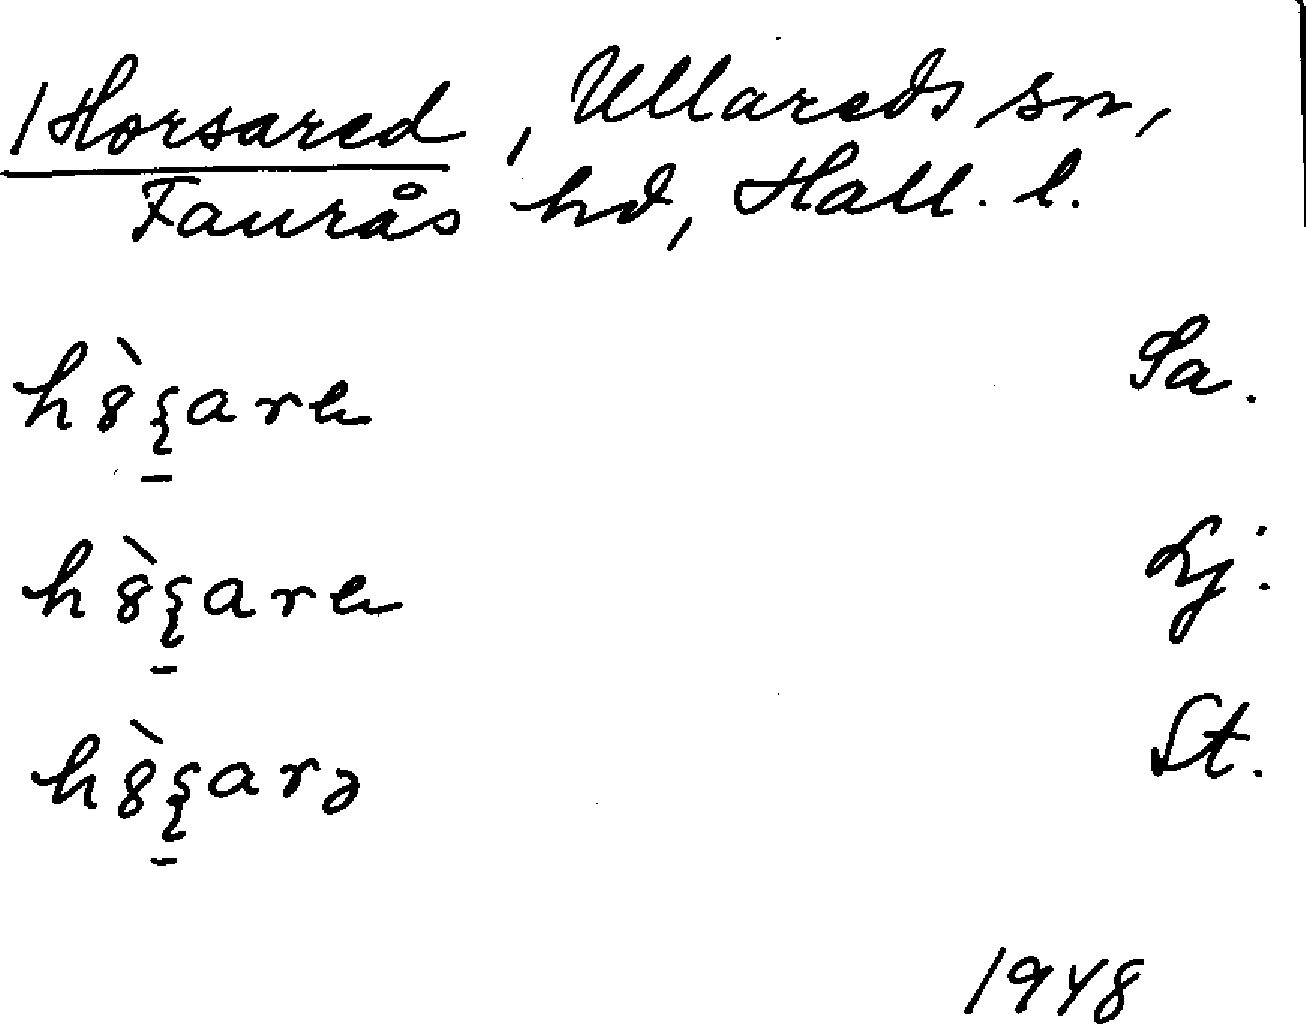 /Horsared, Ullareds sn,
Faurås hd, Hall. l.
h8̀ʂ̱are Sa.
h8̀ʂ̱are Lj.
h8̀ʂ̱arə St.
1948